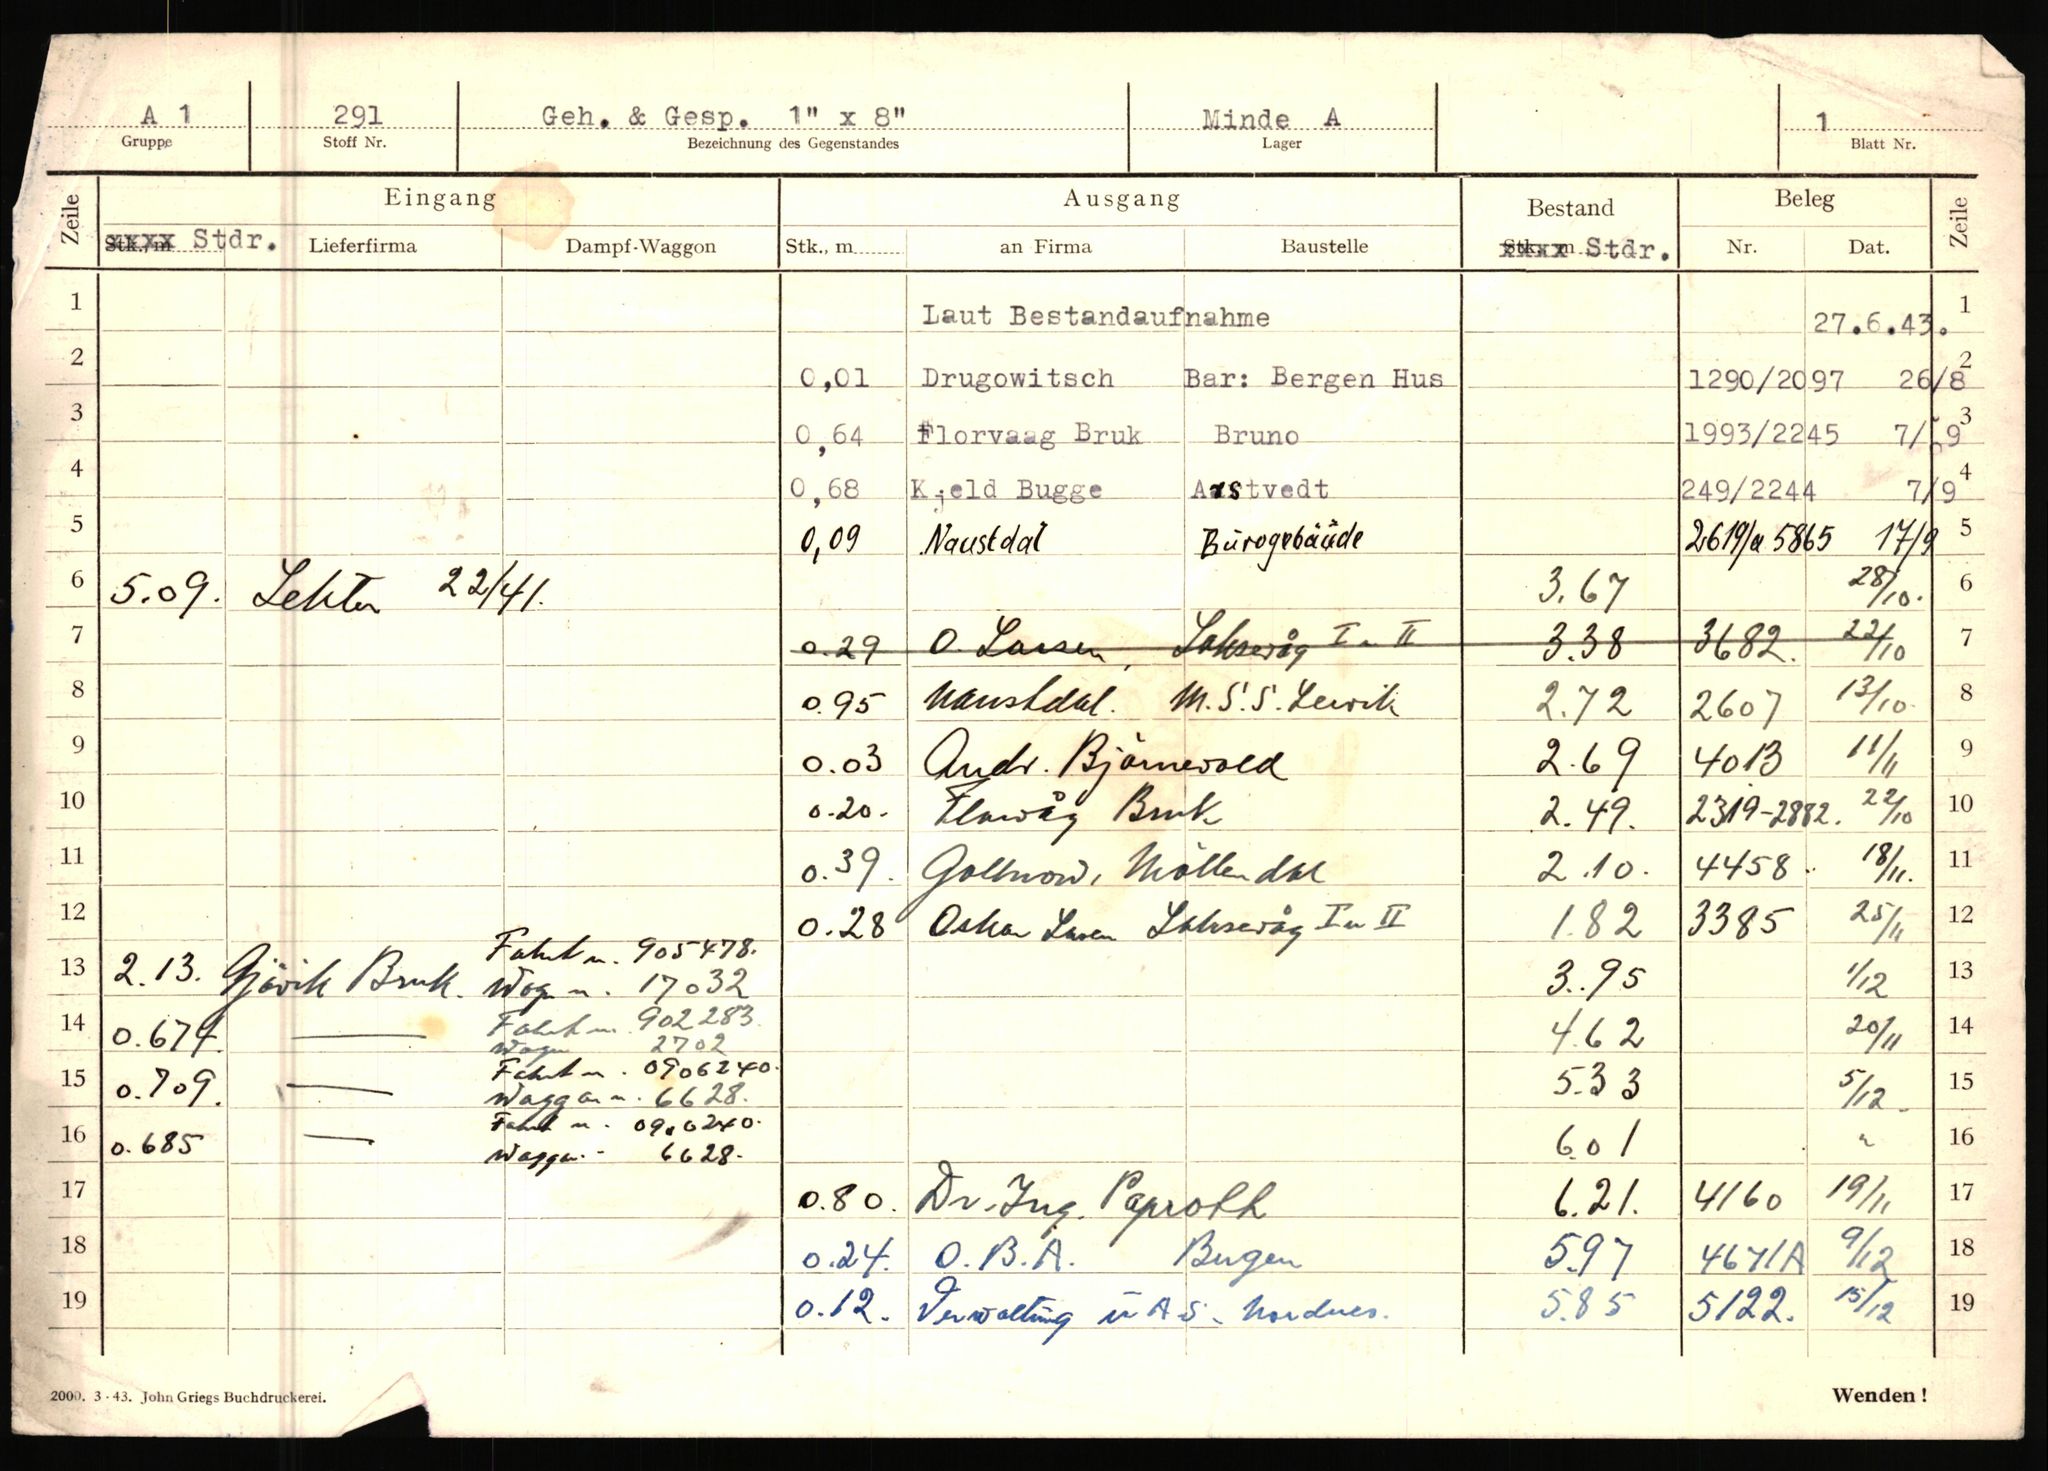 A 1 291 Geh. & Gesp. 1" x 8" Minde A 1
Gruppe Stoff Nr. Bezeichnung des Gegenstandes Lager Blatt Nr.
Zeile Eingang Ausgang Bestand Beleg Zeile
Stk., m Stdr. Lieferfirma Dampf-Waggon Stk., m an Firma Baustelle Stk., m Stdr. Nr. Dat.
1 Laut Bestandaufnahme 27.6.43. 1
2 0,01 Drugowitsch Bar: Bergen Hus 1290/2097 26/8 2
3 0,64 Florvaag Bruk Bruno 1993/2245 7/9 3
4 0,68 Kjeld Bugge Aastvedt 249/2244 7/9 4
5 0,09 Naustdal Bürogebäude 2619/a 5865 17/9 5
6 5.09. Lekter 22/41. 3.67 28/10. 6
7 0.29 O. Larsen, Laksevåg I u II 3.38 3682. 22/10 7
8 0.95 Naustdal. M.S.S. Lervik 2.72 2607 13/10. 8
9 0.03 Andr. Björnevold 2.69 4013 11/11 9
10 0.20. Florvåg Bruk 2.49. 2319-2882. 22/10 10
11 0.39. Gollnow, Möllendal 2.10. 4458. 18/11. 11
12 0.28 Oskar Larsen Laksevåg I u II 1.82 3385 25/11 12
Fahrt n. 905478.
13 2.13. Gjövik Bruk. Wagn. 17032 3.95 1/12 13
14 0.674. Fahrt n. 902283. 4.62 20/11 14
Wagn 2702
15 0.709. Fahrt n. 0906240. 5.33 5/12. 15
Waggon n. 6628.
16 0.685 Fahrt n. 0906240. 6.01 " 16
Waggn. 6628.
17 0.80. Dr. Ing. Paproth 6.21. 4160 19/11 17
18 0.24. O.B.A. Bergen 5.97 4671A 9/12 18
19 0.12. Verwaltung ü A S. Nordnes. 5.85 5122. 15/12 19
2000. 3 - 43. John Griegs Buchdruckerei. Wenden!